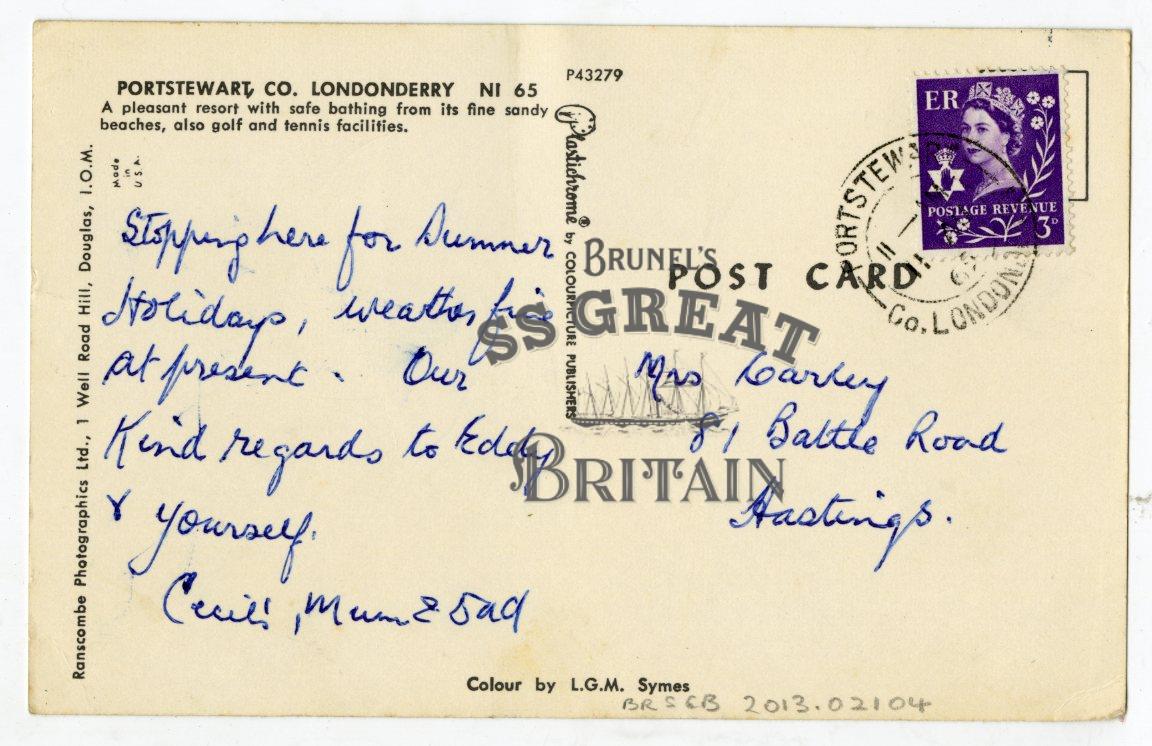 PORTSTEWART, CO. LONDONDERRY NI 65
A pleasant resort with safe bathing from its fine sandy
beaches, also golf and tennis facilities.
Made
in
U.S.A.
Ranscombe Photographics Ltd., 1 Well Road Hill, Douglas, I.O.M.
Stopping here for Summer
Holidays, weather fine
at present. Our
Kind regards to Eddy
& yourself.
Cecil's, Mum & Dad
P43279
Plastichrome® by COLOURPICTURE PUBLISHERS
BRUNEL'S
SS GREAT
BRITAIN
POST CARD
ER
POSTAGE REVENUE
3D
PORTSTEWART
Co. LONDOND
Mrs
81 Battle Road
Hastings.
Colour by L.G.M. Symes
BRSGB 2013.02104